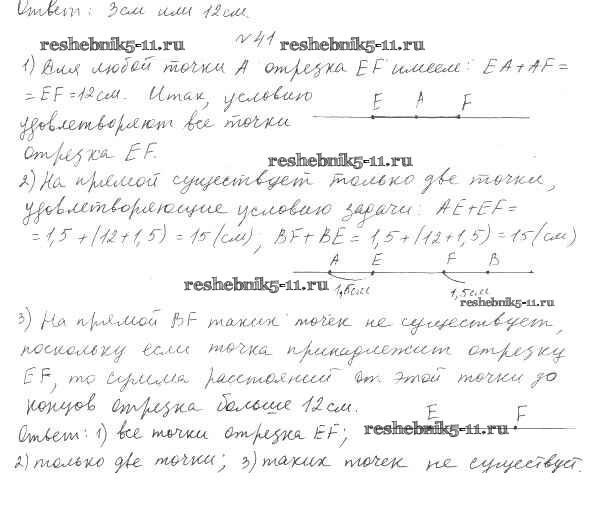 Ответ: 3 см или 12 см.
reshebnik5-11.ru №41 reshebnik5-11.ru
1) Для любой точки A отрезка EF имеем: EA+AF=
=EF=12см. Итак, условию
E A F
удовлетворяют все точки
отрезка EF.
reshebnik5-11.ru
2) На прямой существует только две точки,
удовлетворяющие условию задачи: AE+EF=
=1,5+(12+1,5)=15(см), BF+BE=1,5+(12+1,5)=15(см)
A E F B
reshebnik5-11.ru 1,5см 1,5см
reshebnik5-11.ru
3) На прямой BF таких точек не существует,
поскольку если точка принадлежит отрезку
EF, то сумма расстояний от этой точки до
концов отрезка больше 12см.
E F
Ответ: 1) все точки отрезка EF; reshebnik5-11.ru
2) только две точки; 3) таких точек не существует.